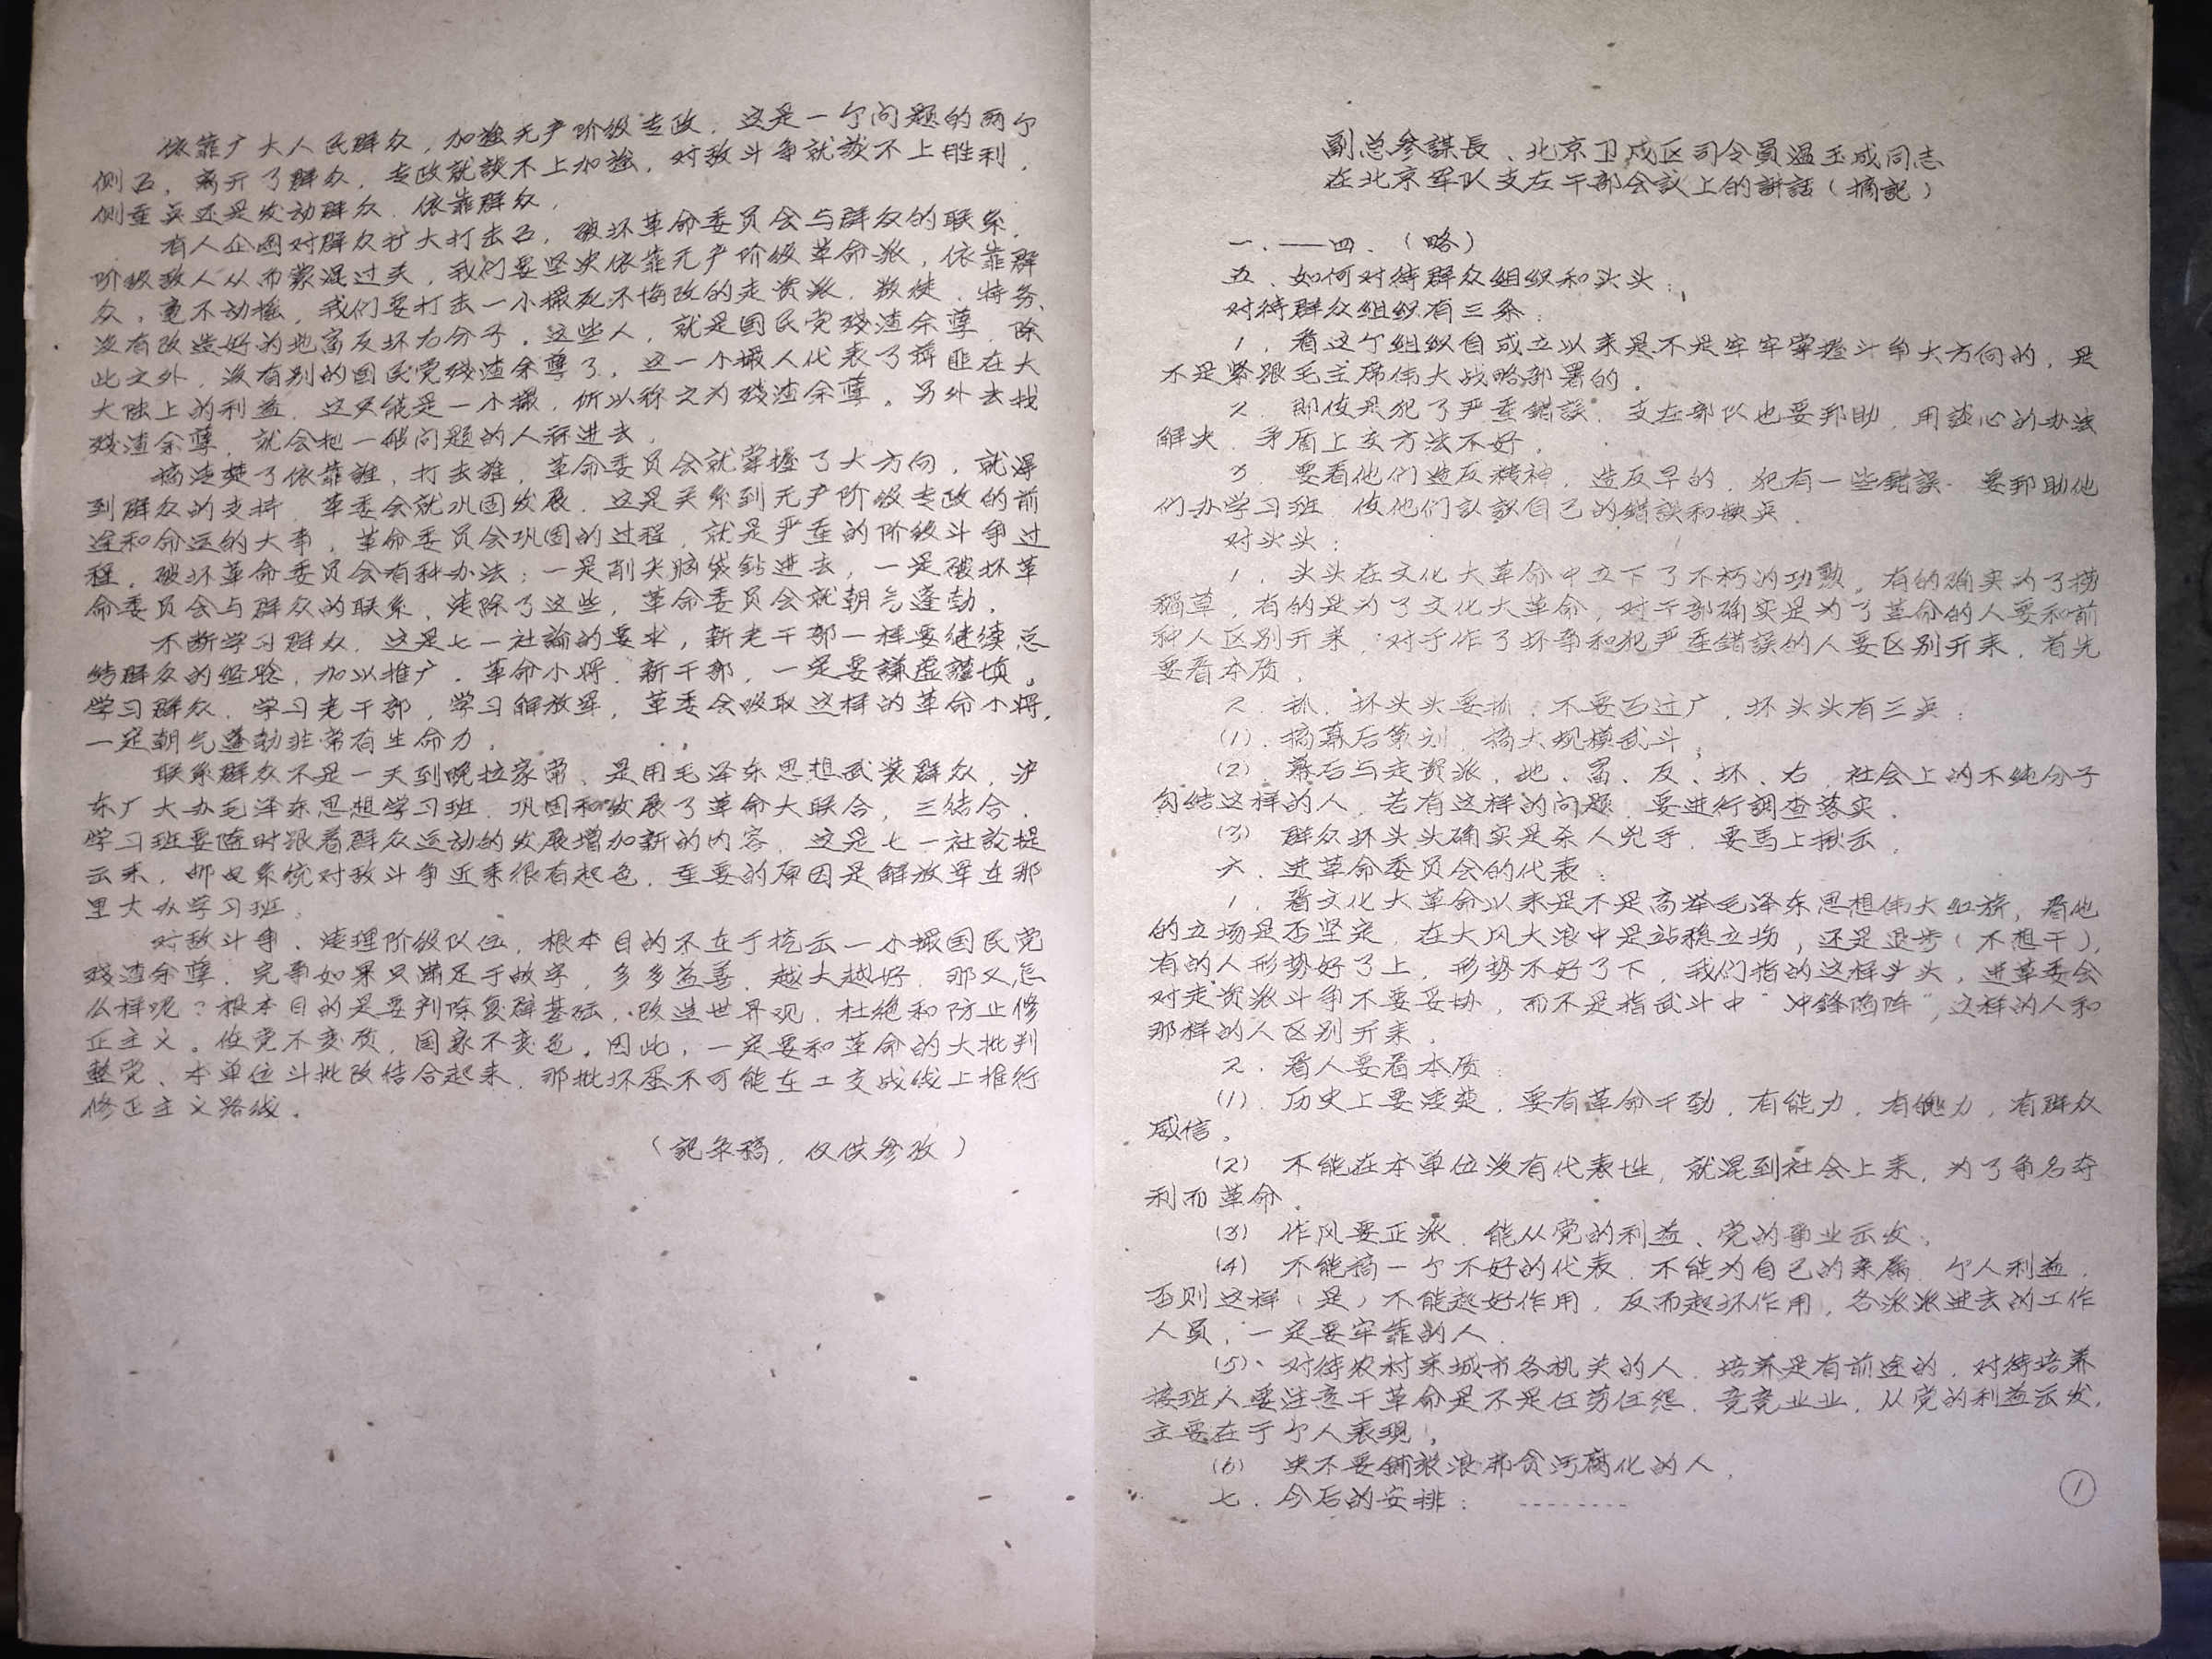 依靠广大人民群众，加強无产阶级专政，这是一个问题的两个
侧面，离开了群众，专政就談不上加強，对敌斗争就談不上胜利，
侧重点还是发动群众，依靠群众，
有人企图对群众扩大打击面，破坏革命委员会与群众的联系，
阶级敌人从而蒙混过关，我们要坚决依靠无产阶级革命派，依靠群
众，毫不动摇，我们要打击一小撮死不悔改的走资派、叛徒、特务、
没有改造好的地富反坏右分子，这些人，就是国民党残渣余孽，除
此之外，没有别的国民党残渣余孽了，这一小撮人代表了蒋匪在大
大陆上的利益，这只能是一小撮，所以称之为残渣余孽。另外去找
残渣余孽，就会把一般问题的人弄进去，
搞清楚了依靠誰，打击誰，革命委员会就掌握了大方向，就得
到群众的支持，革委会就巩固发展，这是关系到无产阶级专政的前
途和命运的大事，革命委员会巩固的过程，就是严重的阶级斗争过
程，破坏革命委员会有种办法：一是削尖脑袋鉆进去，一是破坏革
命委员会与群众的联系，清除了这些，革命委员会就朝气蓬勃，
不断学习群众，这是七一社論的要求，新老干部一样要继续总
结群众的经验，加以推广，革命小将、新干部，一定要謙虚謹慎，
学习群众、学习老干部，学习解放军，革委会吸取这样的革命小将，
一定朝气蓬勃非常有生命力，
联系群众不是一天到晚拉家常、是用毛泽东思想武装群众，沪
东厂大办毛泽东思想学习班，巩固和发展了革命大联合，三结合，
学习班要随时跟着群众运动的发展增加新的内容，这是七一社論提
出来，邮电系统对敌斗争近来很有起色，重要的原因是解放军在那
里大办学习班，
对敌斗争、清理阶级队伍，根本目的不在于挖出一小撮国民党
残渣余孽，完事如果只满足于数字，多多益善，越大越好，那又怎
么样呢？根本目的是要剷除复辟基础，改造世界观，杜絶和防止修
正主义。使党不变质，国家不变色，因此，一定要和革命的大批判
整党、本单位斗批改结合起来，那批坏蛋不可能在工交战线上推行
修正主义路线。
（記录稿，仅供参攷）
副总参謀長、北京卫戍区司令員温玉成同志
在北京军队支左干部会議上的讲話（摘記）
一．——四．（略）
五．如何对待群众组织和头头：
对待群众组织有三条：
1．看这个组织自成立以来是不是牢牢掌握斗争大方向的，是
不是紧跟毛主席伟大战略部署的．
2．即使是犯了严重錯誤．支左部队也要邦助，用談心的办法
解决，矛盾上交方法不好，
3．要看他们造反精神，造反早的，犯有一些錯誤．要邦助他
们办学习班，使他们认識自己的錯誤和缺点．
对头头：
1．头头在文化大革命中立下了不朽的功勲。有的确实为了捞
稻草，有的是为了文化大革命，对干部确实是为了革命的人要和前
种人区别开来，对于作了坏事和犯严重錯誤的人要区别开来，首先
要看本质，
2．抓．坏头头要抓，不要面过广，坏头头有三点：
(1)．搞幕后策划，搞大规模武斗；
(2)．幕后与走资派、地、富、反、坏、右、社会上的不纯分子
勾结这样的人，若有这样的问題，要进行調查落实．
(3) 群众坏头头确实是杀人兇手，要馬上揪出，
六．进革命委员会的代表：
1．看文化大革命以来是不是高举毛泽东思想伟大红旗，看他
的立场是否坚定，在大风大浪中是站稳立场，还是退步（不想干），
有的人形势好了上，形势不好了下，我们指的这样头头，进革委会
对走资派斗争不要妥协，而不是指武斗中“冲鋒陷阵”，这样的人和
那样的人区别开来．
2．看人要看本质：
(1)．历史上要清楚，要有革命干劲，有能力，有魄力，有群众
威信。
(2) 不能在本单位没有代表性，就混到社会上来，为了争名夺
利而革命．
(3) 作风要正派，能从党的利益、党的事业出发，
(4) 不能搞一个不好的代表，不能为自己的亲属，个人利益，
否则这样（是）不能起好作用，反而起坏作用，各派派进去的工作
人员，一定要牢靠的人．
(5)、对待农村来城市各机关的人．培养是有前途的，对待培养
接班人要注意干革命是不是任劳任怨，兢兢业业，从党的利益出发，
主要在于个人表現，
(6) 决不要鋪张浪弗贪污腐化的人．
七．今后的安排： --------
①